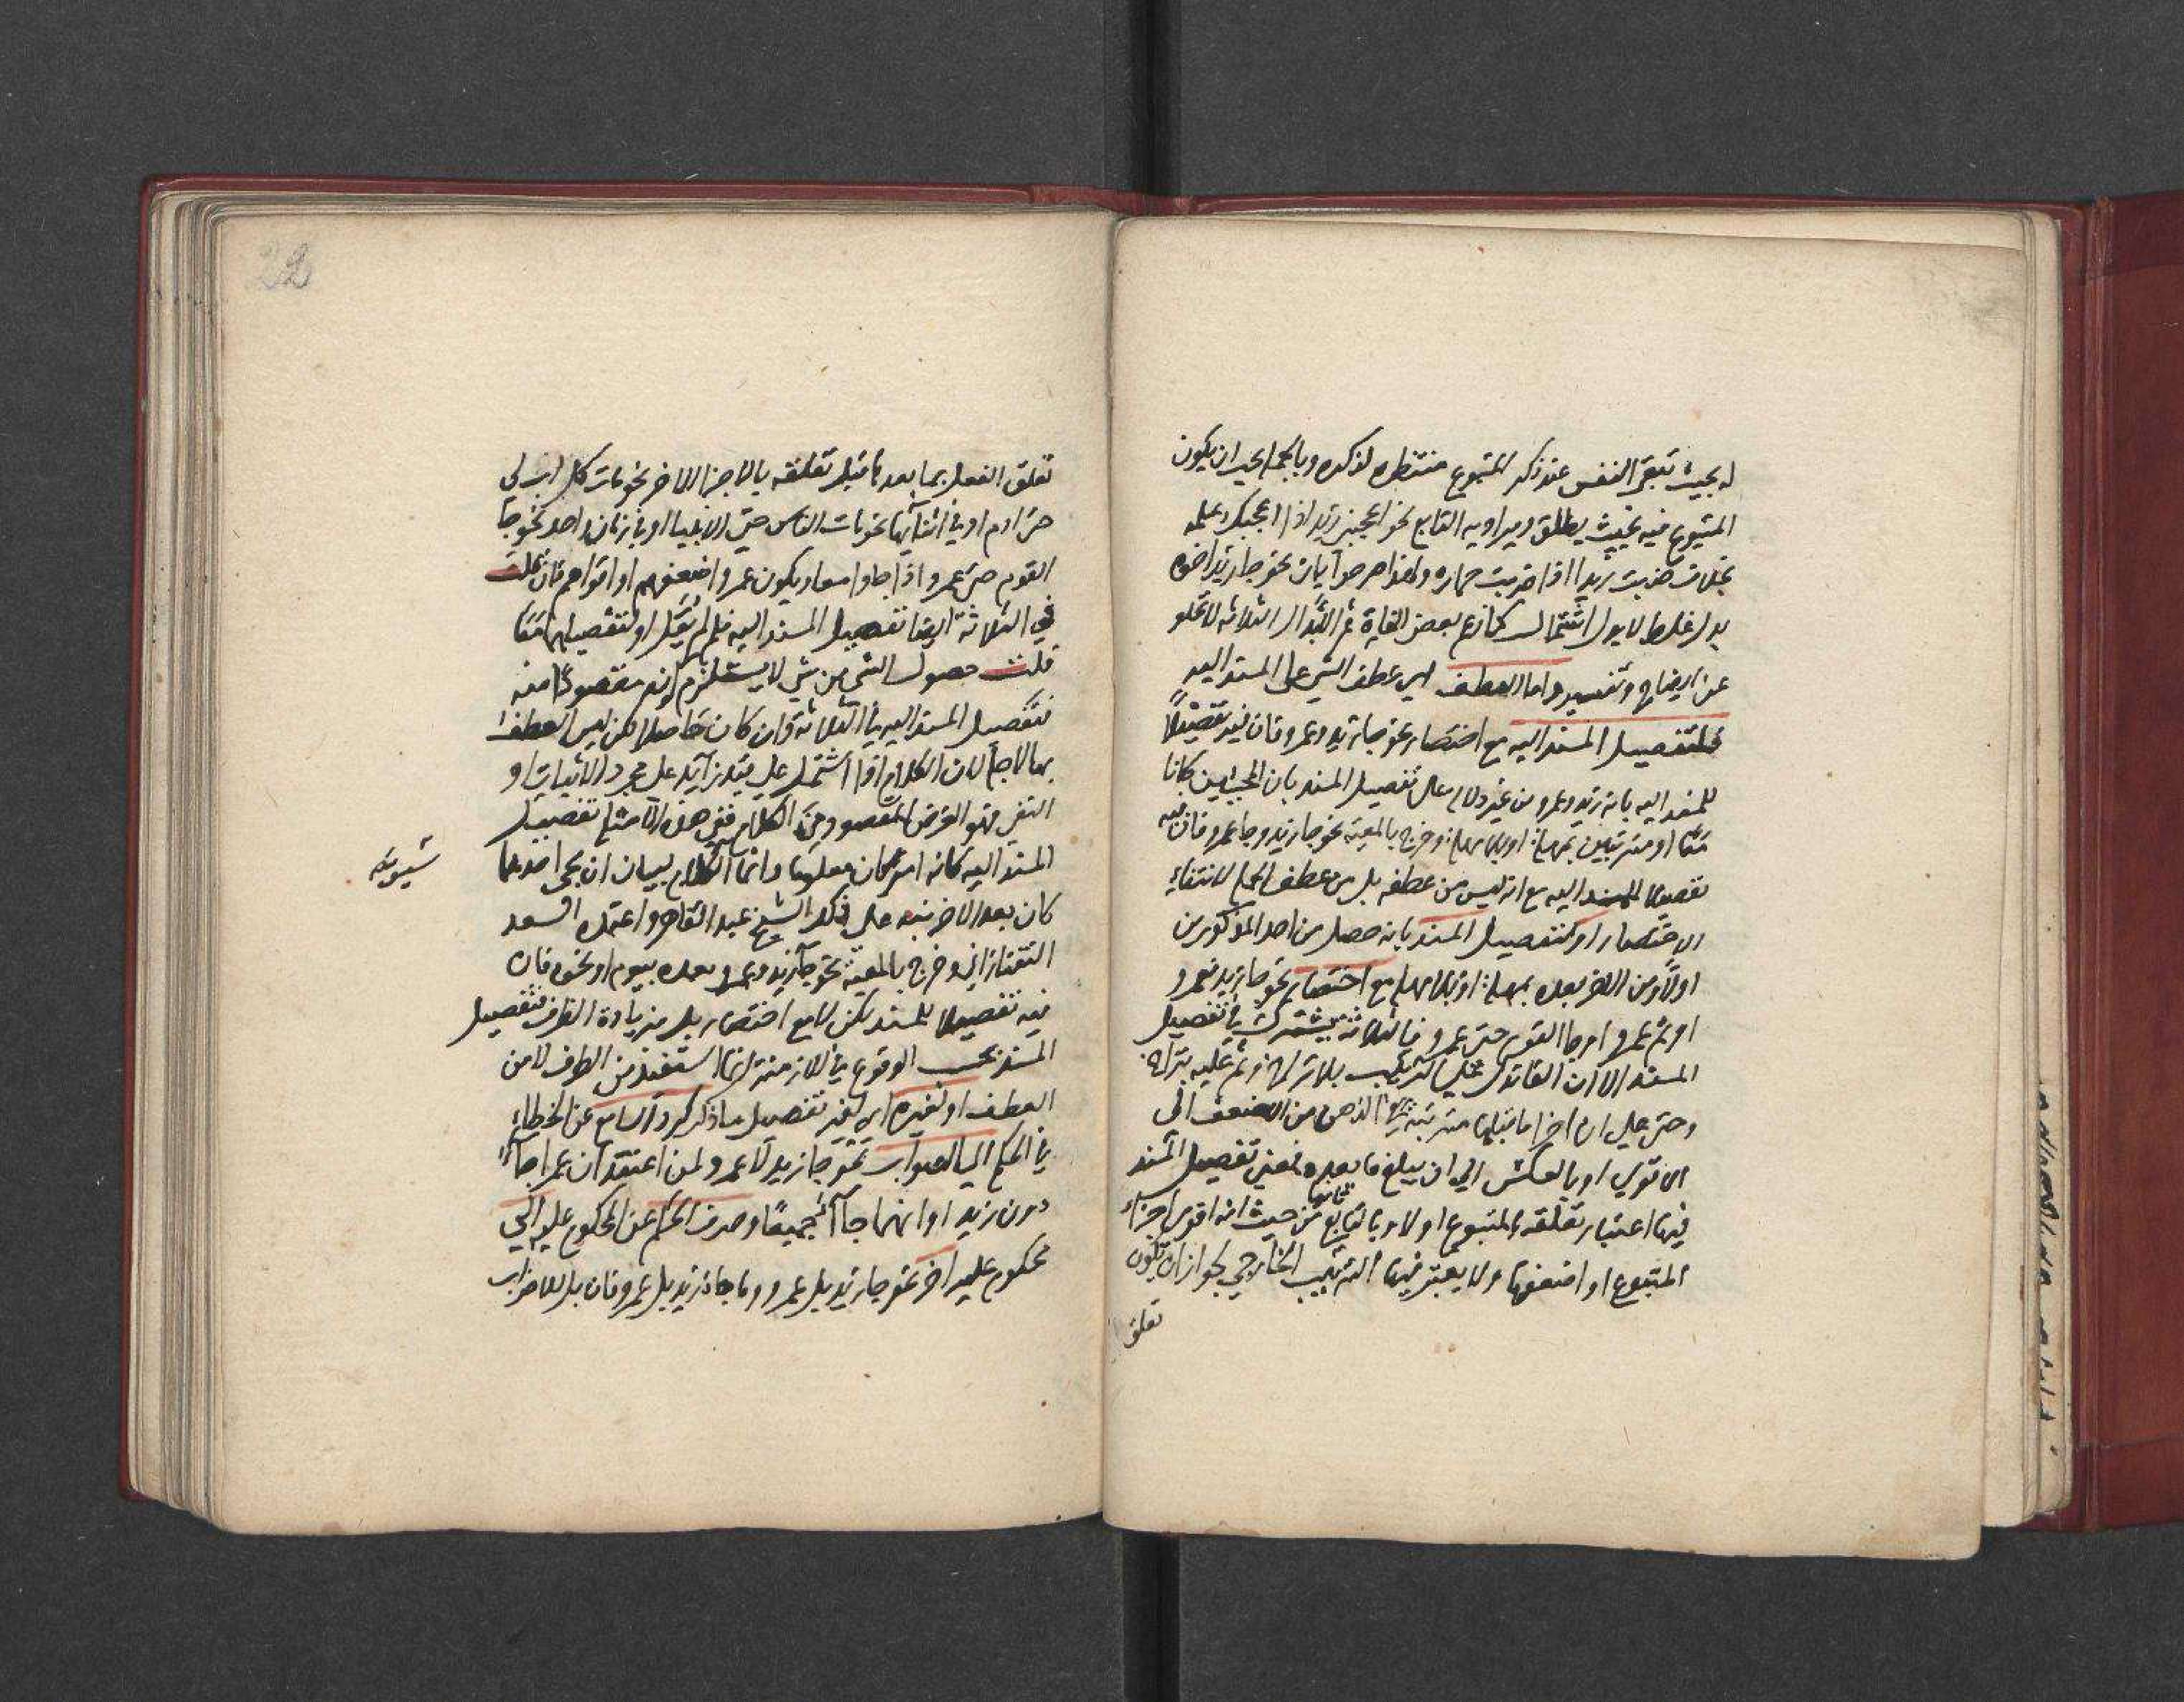 له بحيث تبقى النفس عند ذكر المتبوع منتظره لذكره وبالجملة يجب ان يكون
المتبوع فيه بحيث يطلق ويراد به التابع نحو اعجبني زيد اذا اعجبك علمه
بخلاف ضربت زيدا اذا ضربت حماره ولهذا صرحوا بان نحو جا زيد اخوه
بدل غلط لا بدل اشتمال كما زعم بعض النحاة ثم الابدال الثلاثه لا تخلو
عن ايضاح وتفسير واما العطف اي عطف الشي على المسند اليه
فلتفصيل المسند اليه مع اختصار نحو جا زيد وعمرو فان فيه تفصيلا
للمسند اليه بانه زيد وعمرو من غير دلاله على تفصيل المسند بان المجيئين كانا
معا او مترتبين بمهلة او بلا مهلة وخرج بالمعية نحو جا زيد وجا عمرو فان فيه
تفصيلا للمسند اليه مع انه ليس من عطفه بل من عطف الجمل لانتفاء
الاختصار او لتفصيل المسند بانه حصل من احد المذكورين
اولا ومن الاخر بعده بمهلة او بلا مهلة مع اختصار نحو جا زيد فعمرو
او ثم عمرو او جا القوم حتى عمرو فالثلاثة تشترك في تفصيل
المسند الا ان الفا تدل على التعقيب بلا تراخ وثم عليه بتراخ
وحتى على ان اجزا ما قبلها مترتبة في الذهن من الاضعف الى
الاقوي او بالعكس الي ان يبلغ ما بعدها فمعنى تفصيل المسند
فيها اعتبار تعلقه بالمتبوع اولا وبالتابع ثانيا من حيث انه اقوي اجزاء
المتبوع او اضعفها ولا يعتبر فيها الترتيب الخارجي لجواز ان يكون
تعلق
22
تعلق الفعل بما بعدها قبل تعلقه بالاجزا الاخر نحو مات كل اب لي
حتى ادم او في اثنائها نحو مات الناس حتى الانبيا او في زمان واحد نحو جا
القوم حتى عمرو اذا جاوا معا ويكون عمرو اضعفهم او اقواهم فان قلت
في الثلاثة ايضا تفصيل المسند اليه فلم لم يقل او لتفصيلهما معا
قلت حصول الشي من شي لا يستلزم كونه مقصودا منه
فتفصيل المسند اليه في الثلاثة وان كان حاصلا لكن ليس العطف
بها لاجله لان الكلام اذا اشتمل على قيد زايد على مجرد الاثبات او
النفي فهو الغرض المقصود من الكلام ففي هذه الامثلة تفصيل
المسند اليه كانه امر كان معلوما وانما الكلام لبيان ان مجي احدهما
كان بعد الاخر نبه على ذلك الشيخ عبد القاهر واعتمده السعد
التفتازاني وخرج بالمعية نحو جا زيد وعمرو بعده بيوم او نحوه فان
فيه تفصيلا للمسند لكن لا مع اختصار بل مع زيادة الظرف فتفصيل
المسند بحسب الوقوع في الازمنة انما استفيد من الظرف لا من
العطف او لغيره اي لغير تفصيل ما ذكر كرد السامع عن الخطاء
في الحكم الى الصواب نحو جا زيد لا عمرو لمن اعتقد ان عمرا جاءك
دون زيد او انهما جاآ جميعا وصرف الحكم عن المحكوم عليه الي
محكوم عليه اخر نحو جا زيد بل عمرو وما جا زيد بل عمرو فان بل للاضراب